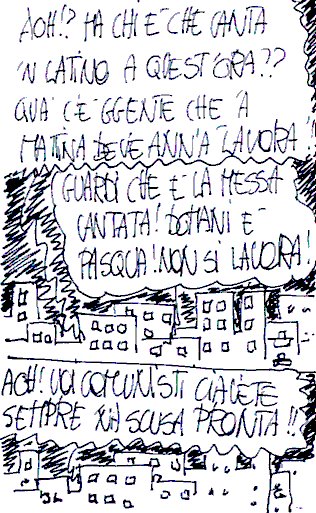 AOH!? MA CHI È CHE CANTA
'N LATINO A QUEST'ORA??
QUA C'È GGENTE CHE 'A
MATTINA DEVE ANN'À LAVORÀ!!
GUARDI CHE È LA MESSA
CANTATA! DOMANI È
PASQUA! NON SI LAVORA!
AOH! VOI COMUNISTI CIAVETE
SEMPRE 'NA SCUSA PRONTA!!